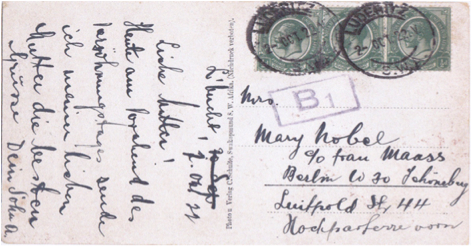 LÜDERITZ
LÜDERITZ
B1
2. Okt 21
Liebe Mutter!
Heute am Vorabend des
Versöhnungstages sende
ich meiner lieben
Mutter die besten
Grüsse Dein Sohn
Photo u. Verlag Swakopmund S. W. Afrika. (Nachdruck verboten).
Mrs.
Mary Nobel
c/o Frau Maass
Berlin W 30 Schöneberg
Luitpold St. 44
Hochparterre vorn